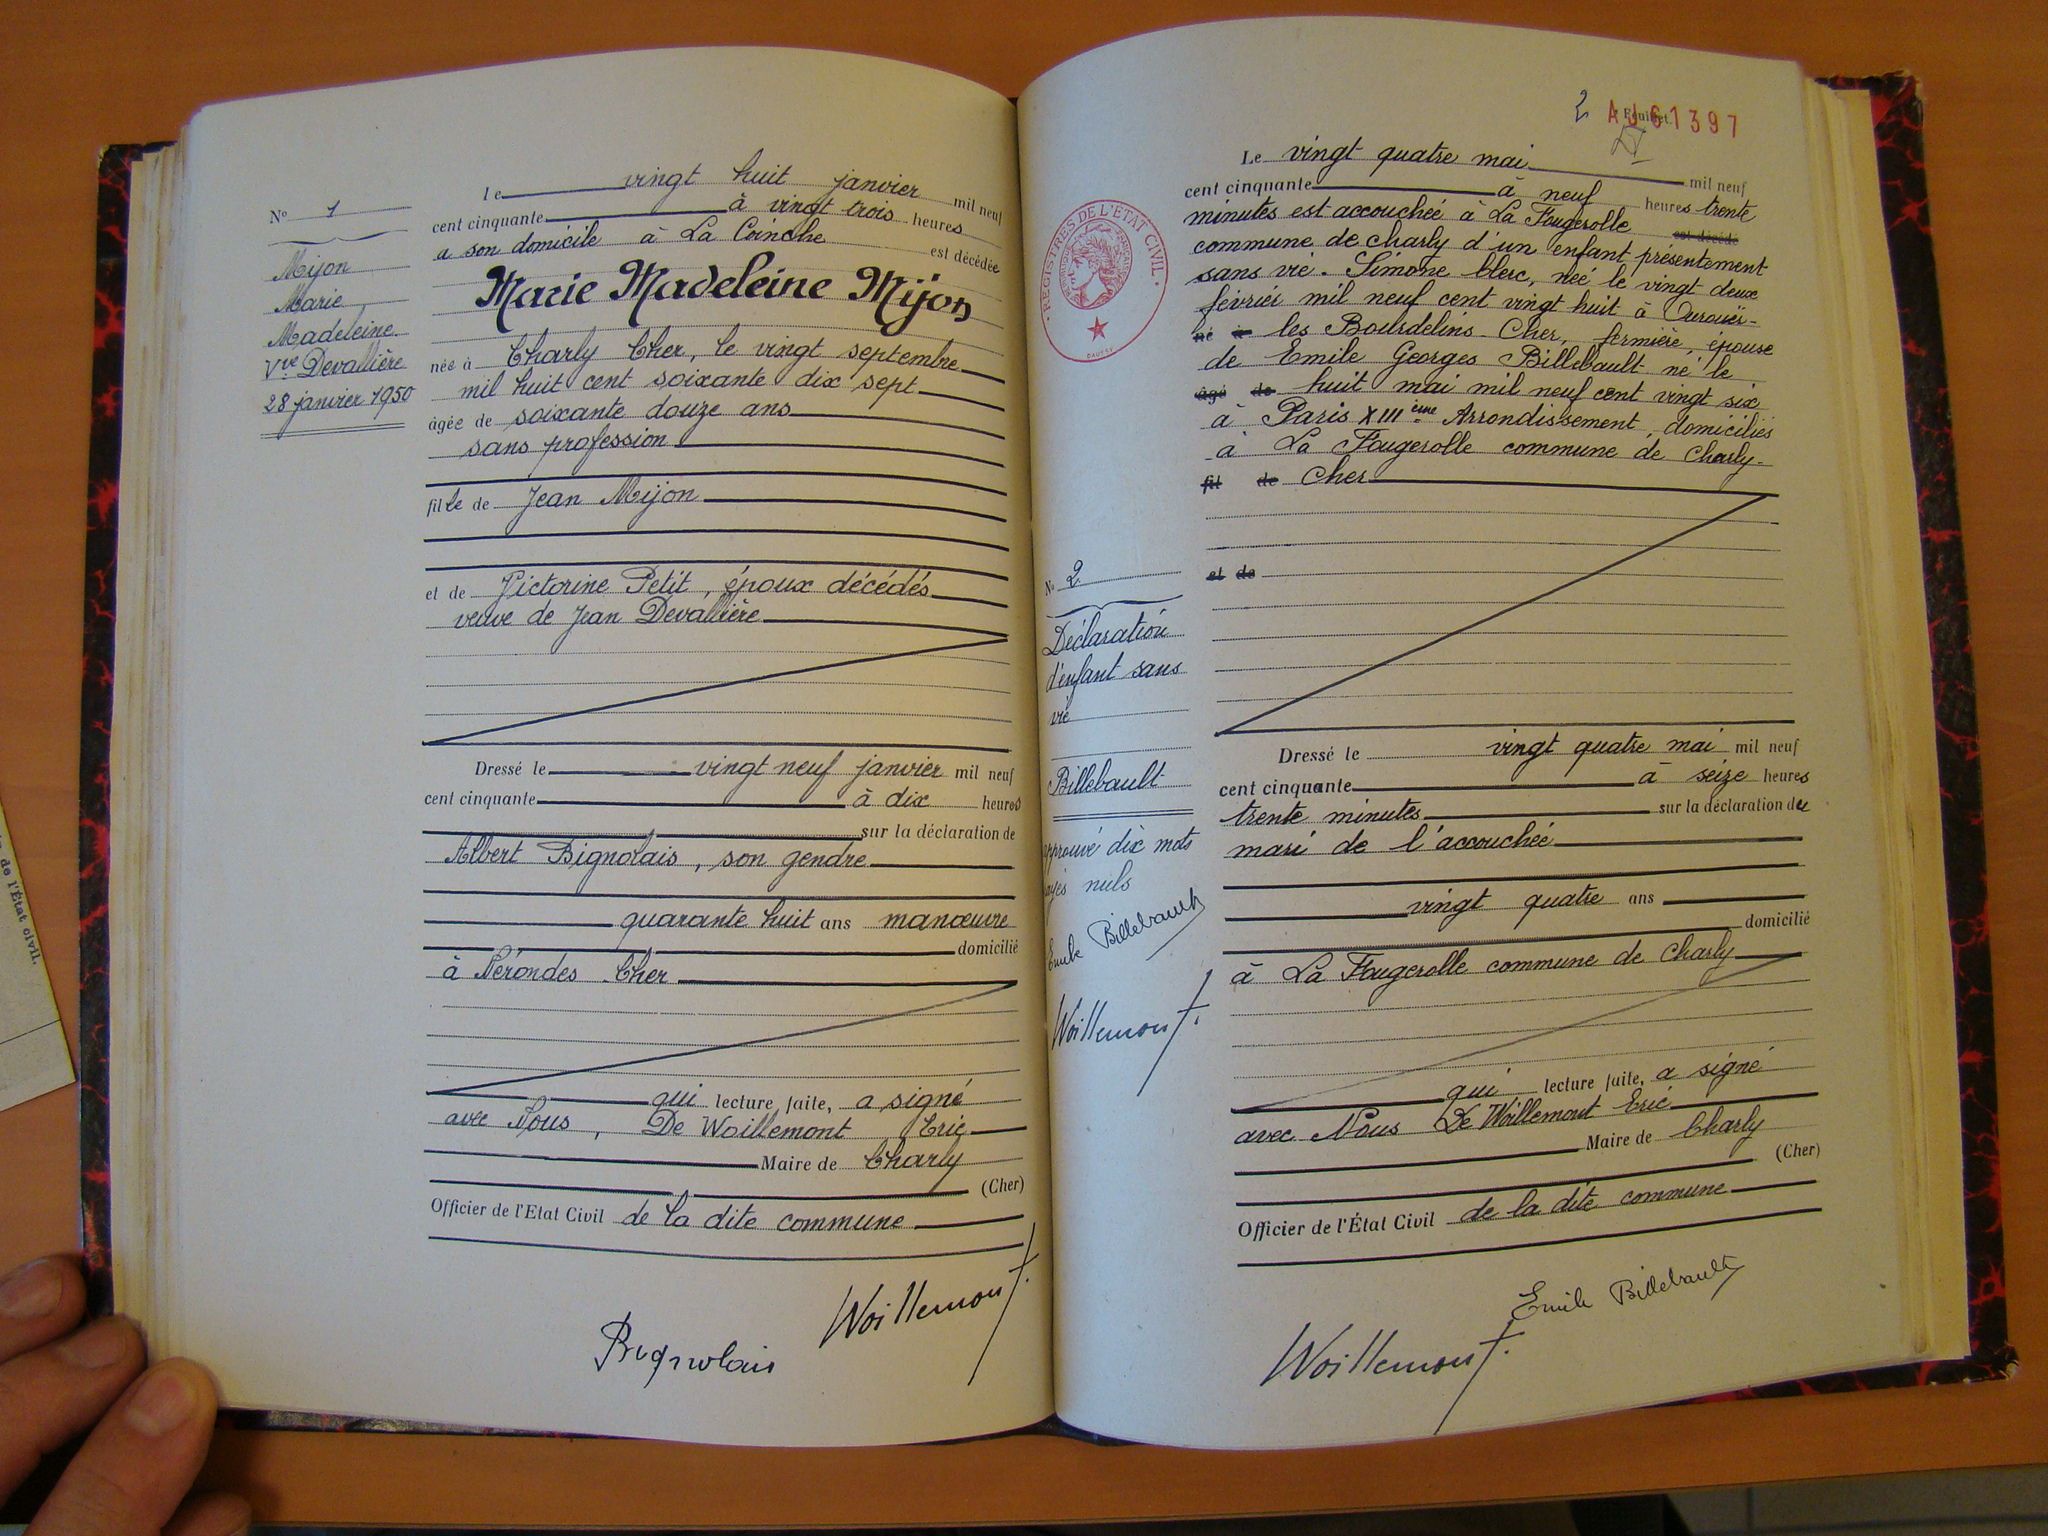 N° 1
Mijon
Marie,
Madeleine
Vve Devallière
28 janvier 1950
Le vingt huit janvier mil neuf
cent cinquante à vingt trois heures
a son domicile à La Coinche est décédée
Marie Madeleine Mijon
née à Charly Cher, le vingt septembre
mil huit cent soixante dix sept
âgée de soixante douze ans
sans profession
fille de Jean Mijon
et de Victorine Petit, époux décédés
veuve de Jean Devallière
Dressé le vingt neuf janvier mil neuf
cent cinquante à dix heures
sur la déclaration de
Albert Bignolais, son gendre
quarante huit ans manœuvre
domicilié
à Nérondes Cher
qui lecture faite, a signé
avec Nous, De Woillemont Eric
Maire de Charly
(Cher)
Officier de l'Etat Civil de la dite commune
Bignolais
Woillemont
2 Feuillet.
AJ61397
REGISTRES DE L'ÉTAT CIVIL
Le vingt quatre mai mil neuf
cent cinquante à neuf heures trente
minutes est accouchée à La Fougerolle est décédé
commune de Charly d'un enfant présentement
sans vie. Simone Clerc, née le vingt deux
février mil neuf cent vingt huit à Ourouër-
né à les Bourdelins-Cher, fermière, épouse
de Emile Georges Billebault né le
âgé de huit mai mil neuf cent vingt six
à Paris XIIIème Arrondissement, domiciliés
à La Fougerolle commune de Charly-
fil de Cher
et de
N° 2
Déclaration
d'enfant sans
vie
Billebault
approuvé dix mots
rayés nuls
Emile Billebault
Woillemont
Dressé le vingt quatre mai mil neuf
cent cinquante à seize heures
trente minutes sur la déclaration du
mari de l'accouchée
vingt quatre ans
domicilié
à La Fougerolle commune de Charly
qui lecture faite, a signé
avec Nous De Woillemont Eric
Maire de Charly
(Cher)
Officier de l'État Civil de la dite commune
Emile Billebault
Woillemont
de l'État civil.